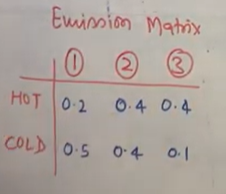 Emission Matrix
1 2 3
HOT 0.2 0.4 0.4
COLD 0.5 0.4 0.1